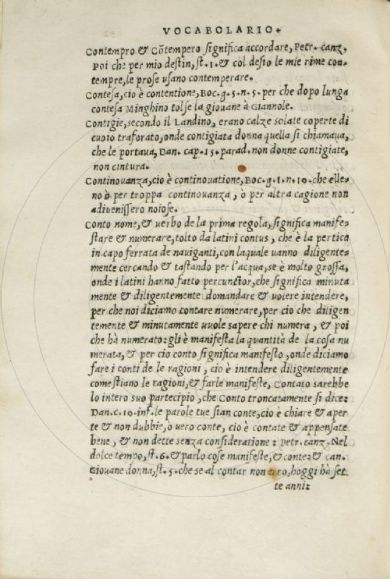 VOCABOLARIO.
Contempro & Cõtempero significa accordare, Petr. canz.
Poi che per mio destin, st. 1. & col desio le mie rime con
tempre, le prose usano contemperare.
Contesa, cio è contentione, Boc. g. 5. n. 5. per che dopo lunga
contesa Minghino tolse la giouane à Giannole.
Contigie, secondo il Landino, erano calze solate coperte di
cuoio traforato, onde contigiata donna quella si chiamaua,
che le portaua, Dan. cap. 15. parad. non donne contigiate,
non cintura.
Continouanza, cio è continouatione, Boc. g. 1. n. 10. che elle
no ò per troppa continouanza, ò per altra cagione non
adiuenissero noiose.
Conto nome, & uerbo de la prima regola, significa manife
stare & numerare, tolto da latini contus, che è la pertica
in capo ferrata de nauiganti, con laquale uanno diligente
mente cercando & tastando per l'acqua, se è molto grossa,
onde i latini hanno fatto percunctor, che significa minuta
mente & diligentemente domandare & uolere intendere,
per che noi diciamo contare numerare, per cio che diligen
temente & minutamente uuole sapere chi numera, & poi
che hà numerato: gli è manifesta la quantità de la cosa nu
merata, & per cio conto significa manifesto, onde diciamo
fare i conti de le ragioni, cio è intendere diligentemente
come stiano le ragioni, & farle manifeste, Contato sarebbe
lo intero suo participio, che Conto troncatamente si dice:
Dan. c. 10. inf. le parole tue sian conte, cio è chiare & aper
te & non dubbie, o uero conte, cio è contate & appensate
bene, & non dette senza consideratione: Petr. canz. Nel
dolce tempo, st. 6. & parlo cose manifeste, & conte: & can.
Giouane donna, st. 5. che se al contar non erro, hoggi ha set
te anni: